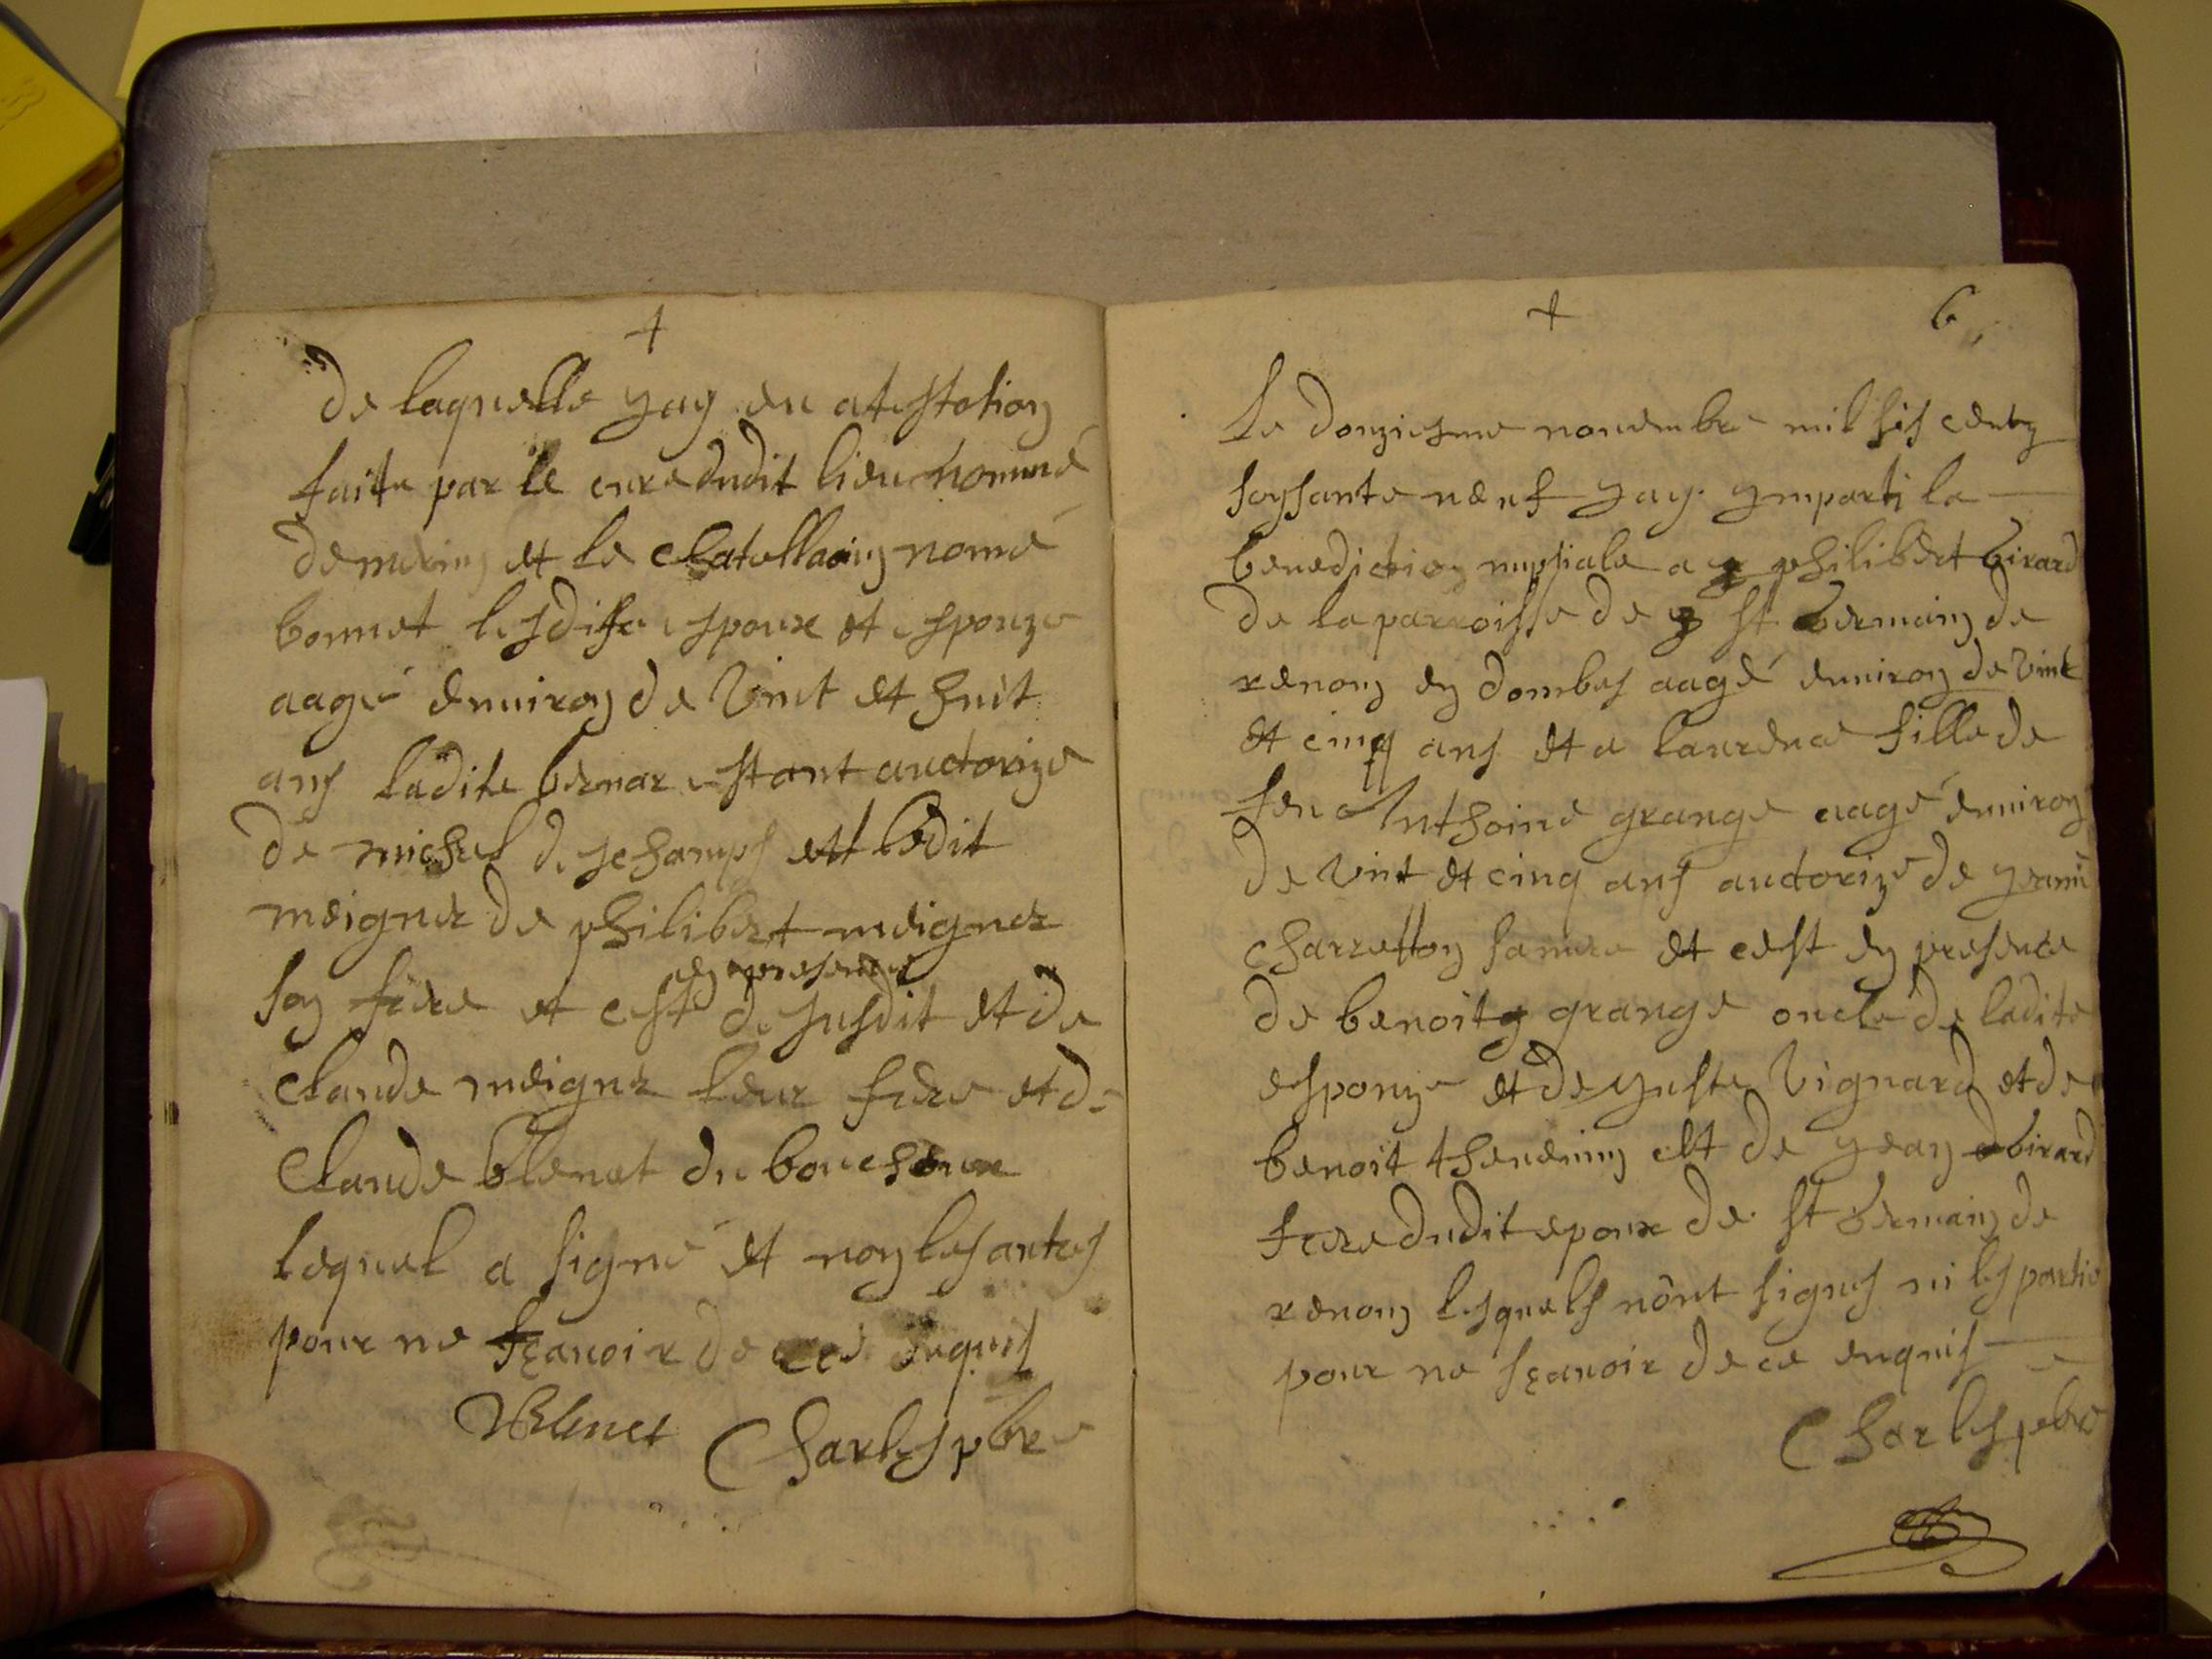 +
de laquelle yay eu atestation
faitte par le curé dudit lieu nommé
demering et le Chatellaing nomé
bonnet lesdits espoux et espouze
aagé enuiron de Vint et huit
ans ladite bernar estant auctorize
de michel deschamps ett ledit
meigner de philibert meigner
son frere et cest en presence de susdit et de
Claude meigner leur frere et de
Claude blenet du bouchoux
lequel a signé et non les autres
pour ne sçauoir de ce enquis
Blenet Charles pbre
+ 6
Le douziesme nouembre mil sis centz
soysante neuf yay ymparti la
benediction nupsiale a philibert Girard
de la parroisse de st Germain de
renon en dombes aagé enuiron de Vint
et cinq ans et a laurence fille de
feu Anthoine grange aagé enuiron
de Vint et cinq ans auctorize de yeanne
Charretton sa mere et cest en presence
de benoit grange oncle de ladite
espouze et de yuste Vignard et de
benoit thenening ett de yean Girard
frere dudit epoux de st Germain de
renon lesquels nônt signes ni les partie
pour ne sçauoir de ce enquis
Charles pbre